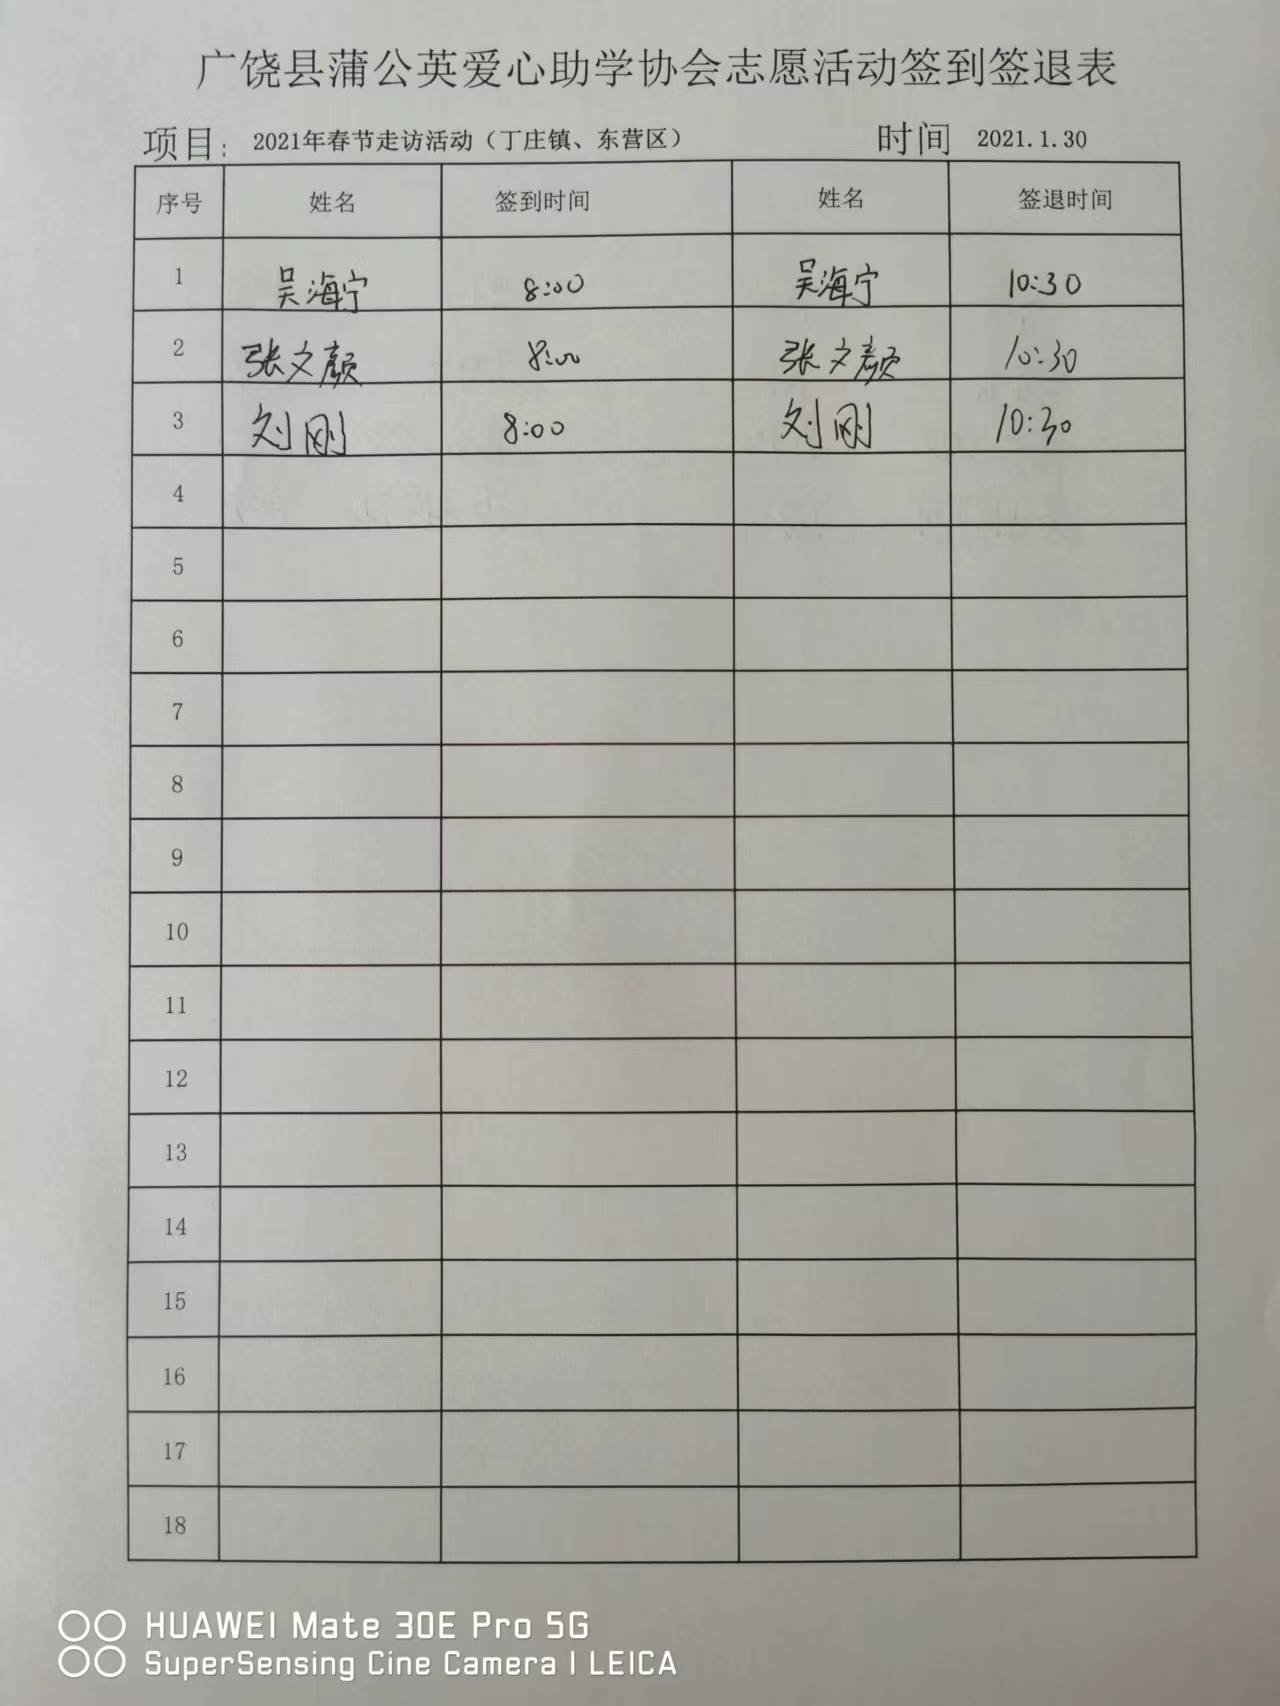 广饶县蒲公英爱心助学协会志愿活动签到签退表
项目: 2021年春节走访活动（丁庄镇、东营区） 时间 2021.1.30
序号 姓名 签到时间 姓名 签退时间
1 吴海宁 8:00 吴海宁 10:30
2 张文颜 8:00 张文颜 10:30
3 刘刚 8:00 刘刚 10:30
4
5
6
7
8
9
10
11
12
13
14
15
16
17
18
HUAWEI Mate 30E Pro 5G
SuperSensing Cine Camera | LEICA